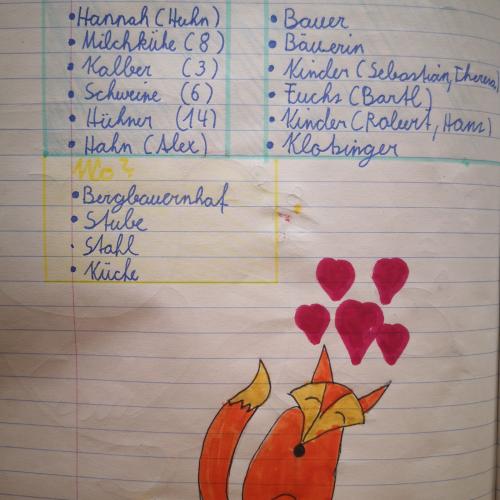 • Hannah (Huhn)
• Milchkühe (8)
• Kalber (3)
• Schweine (6)
• Hühner (14)
• Hahn (Alex)
• Bauer
• Bäuerin
• Kinder (Sebastian, Theresa)
• Fuchs (Bartl)
• Kinder (Robert, Hans)
• Klobinger
Wo?
• Bergbauernhaf
• Stube
• Stahl
• Küche